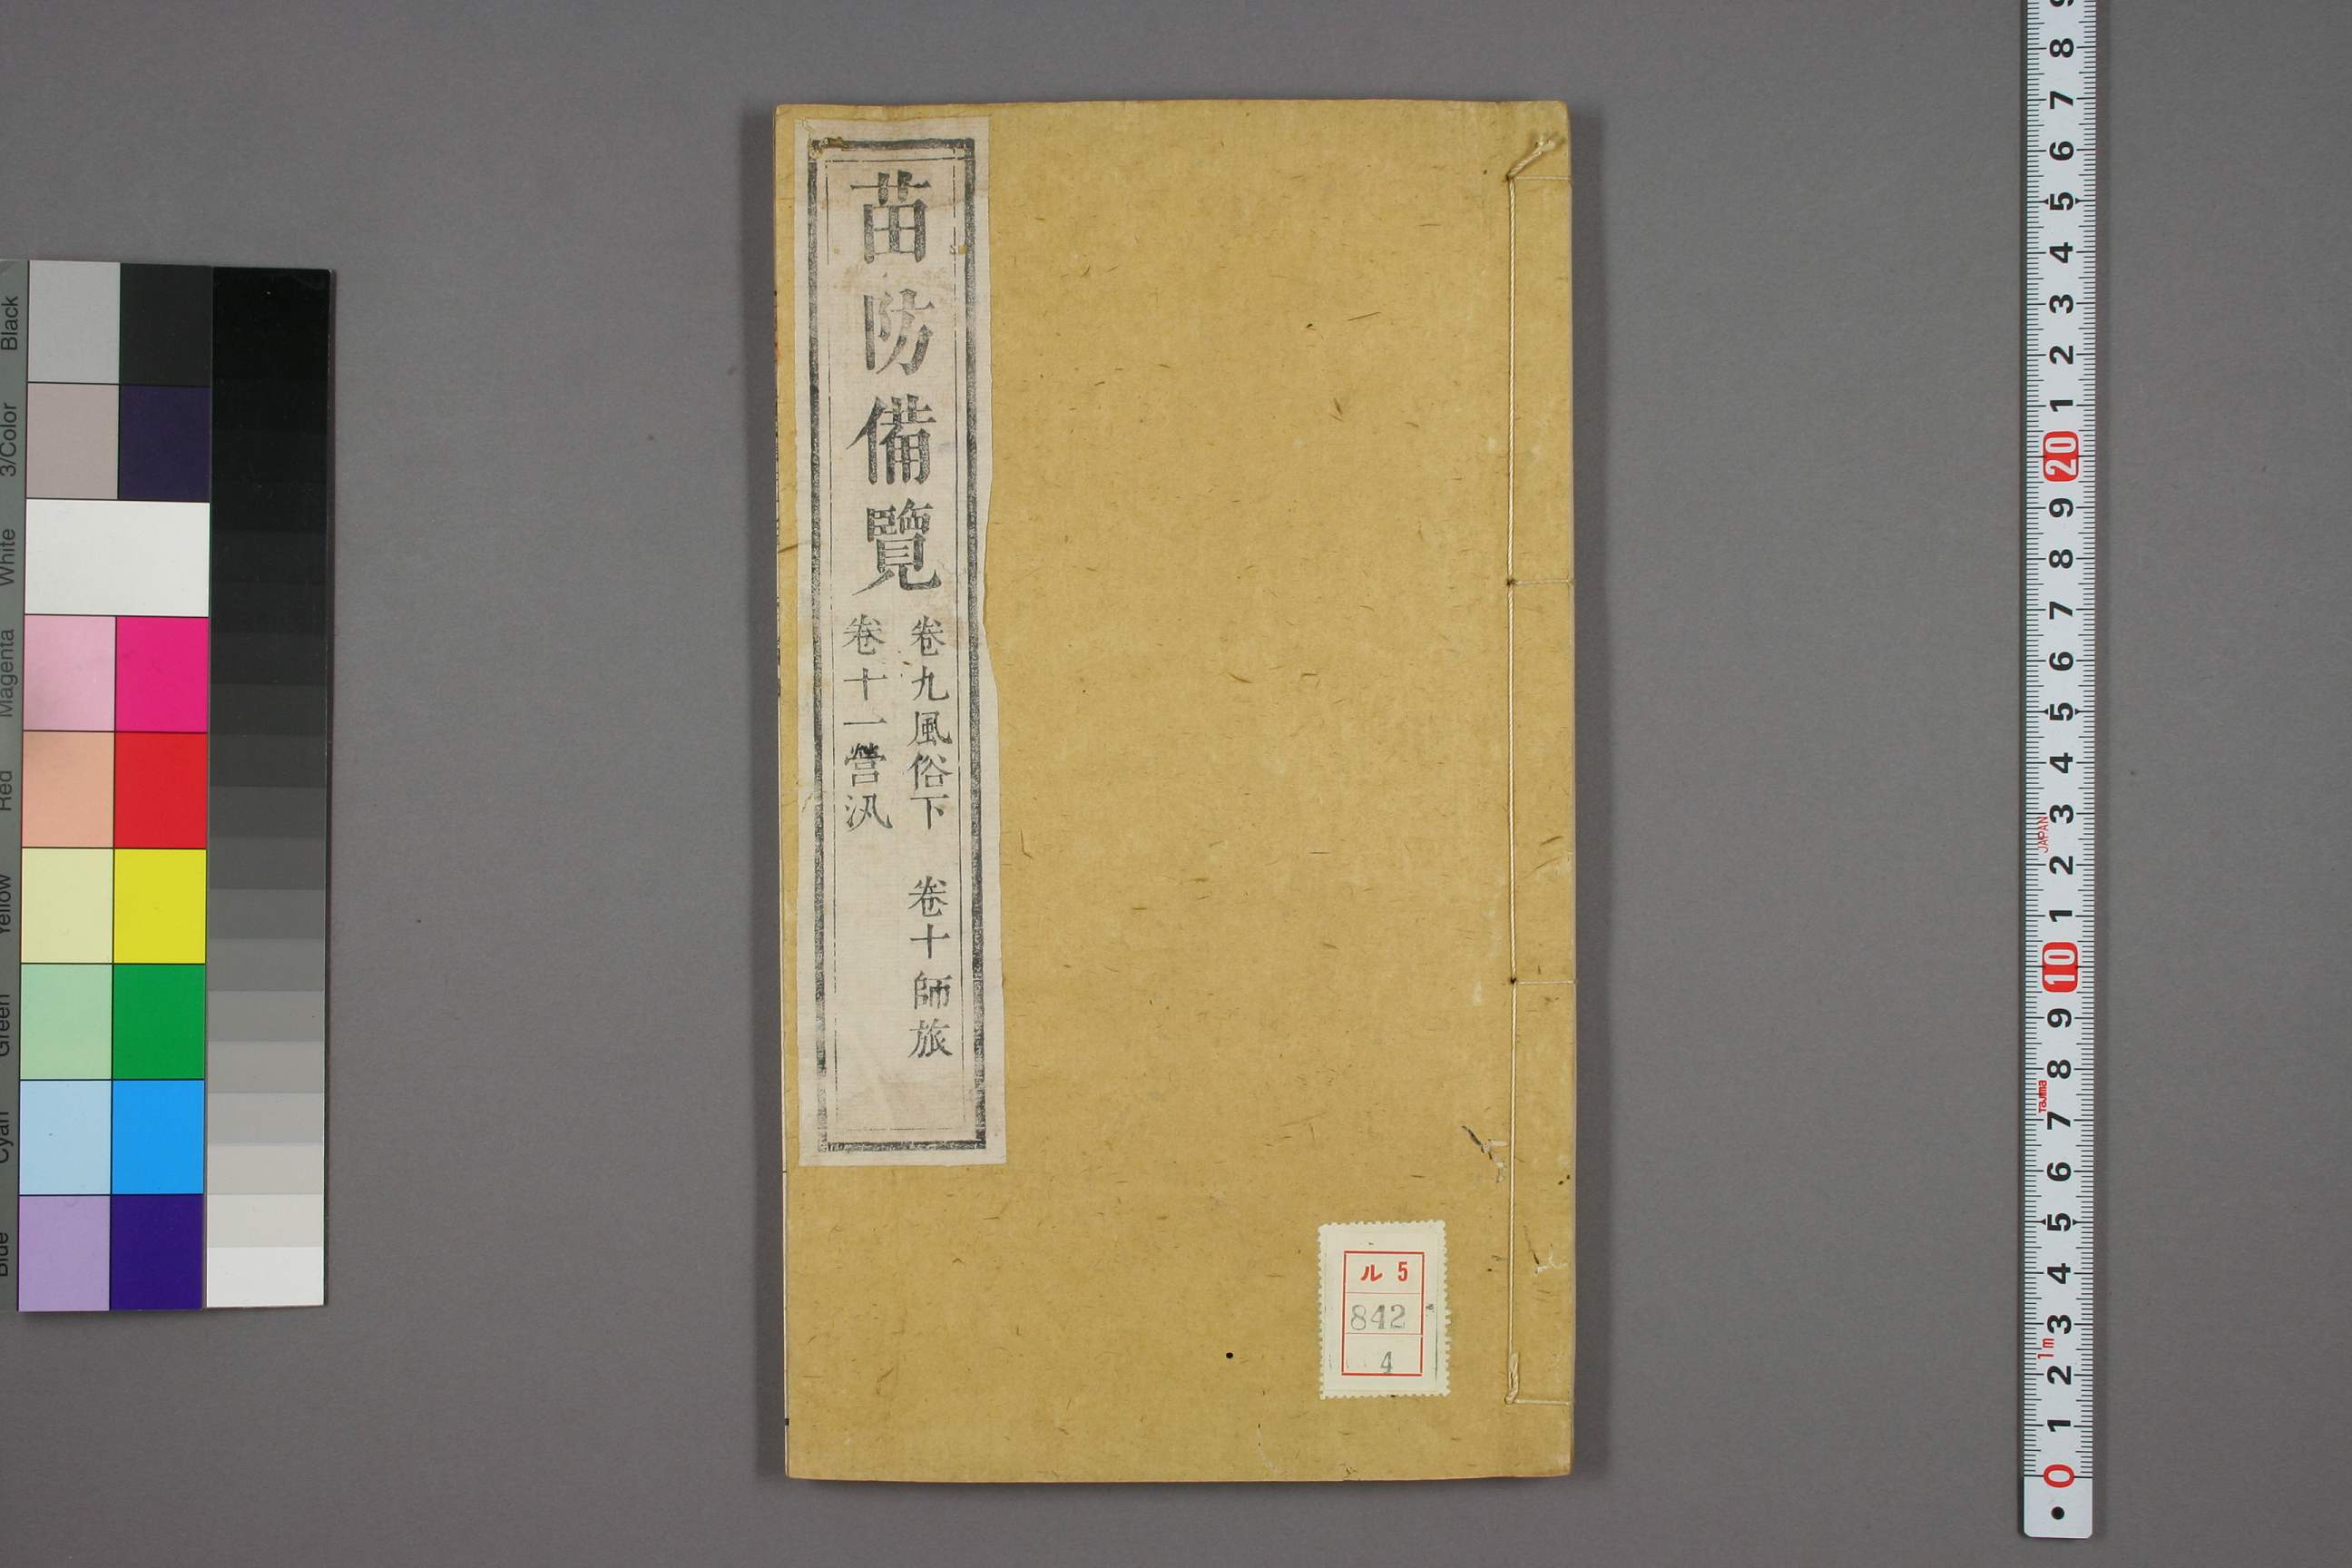 苗防備覽
卷九風俗下 卷十師旅
卷十一營汛
ル 5
842
4
Black
3/Color
White
Magenta
Red
Yellow
Green
Cyan
Blue
9
8
7
6
5
4
3
2
1
20
9
8
7
6
5
4
3
JAPAN
2
1
10
9
8
Tajima
7
6
5
4
3
1m
2
1
0